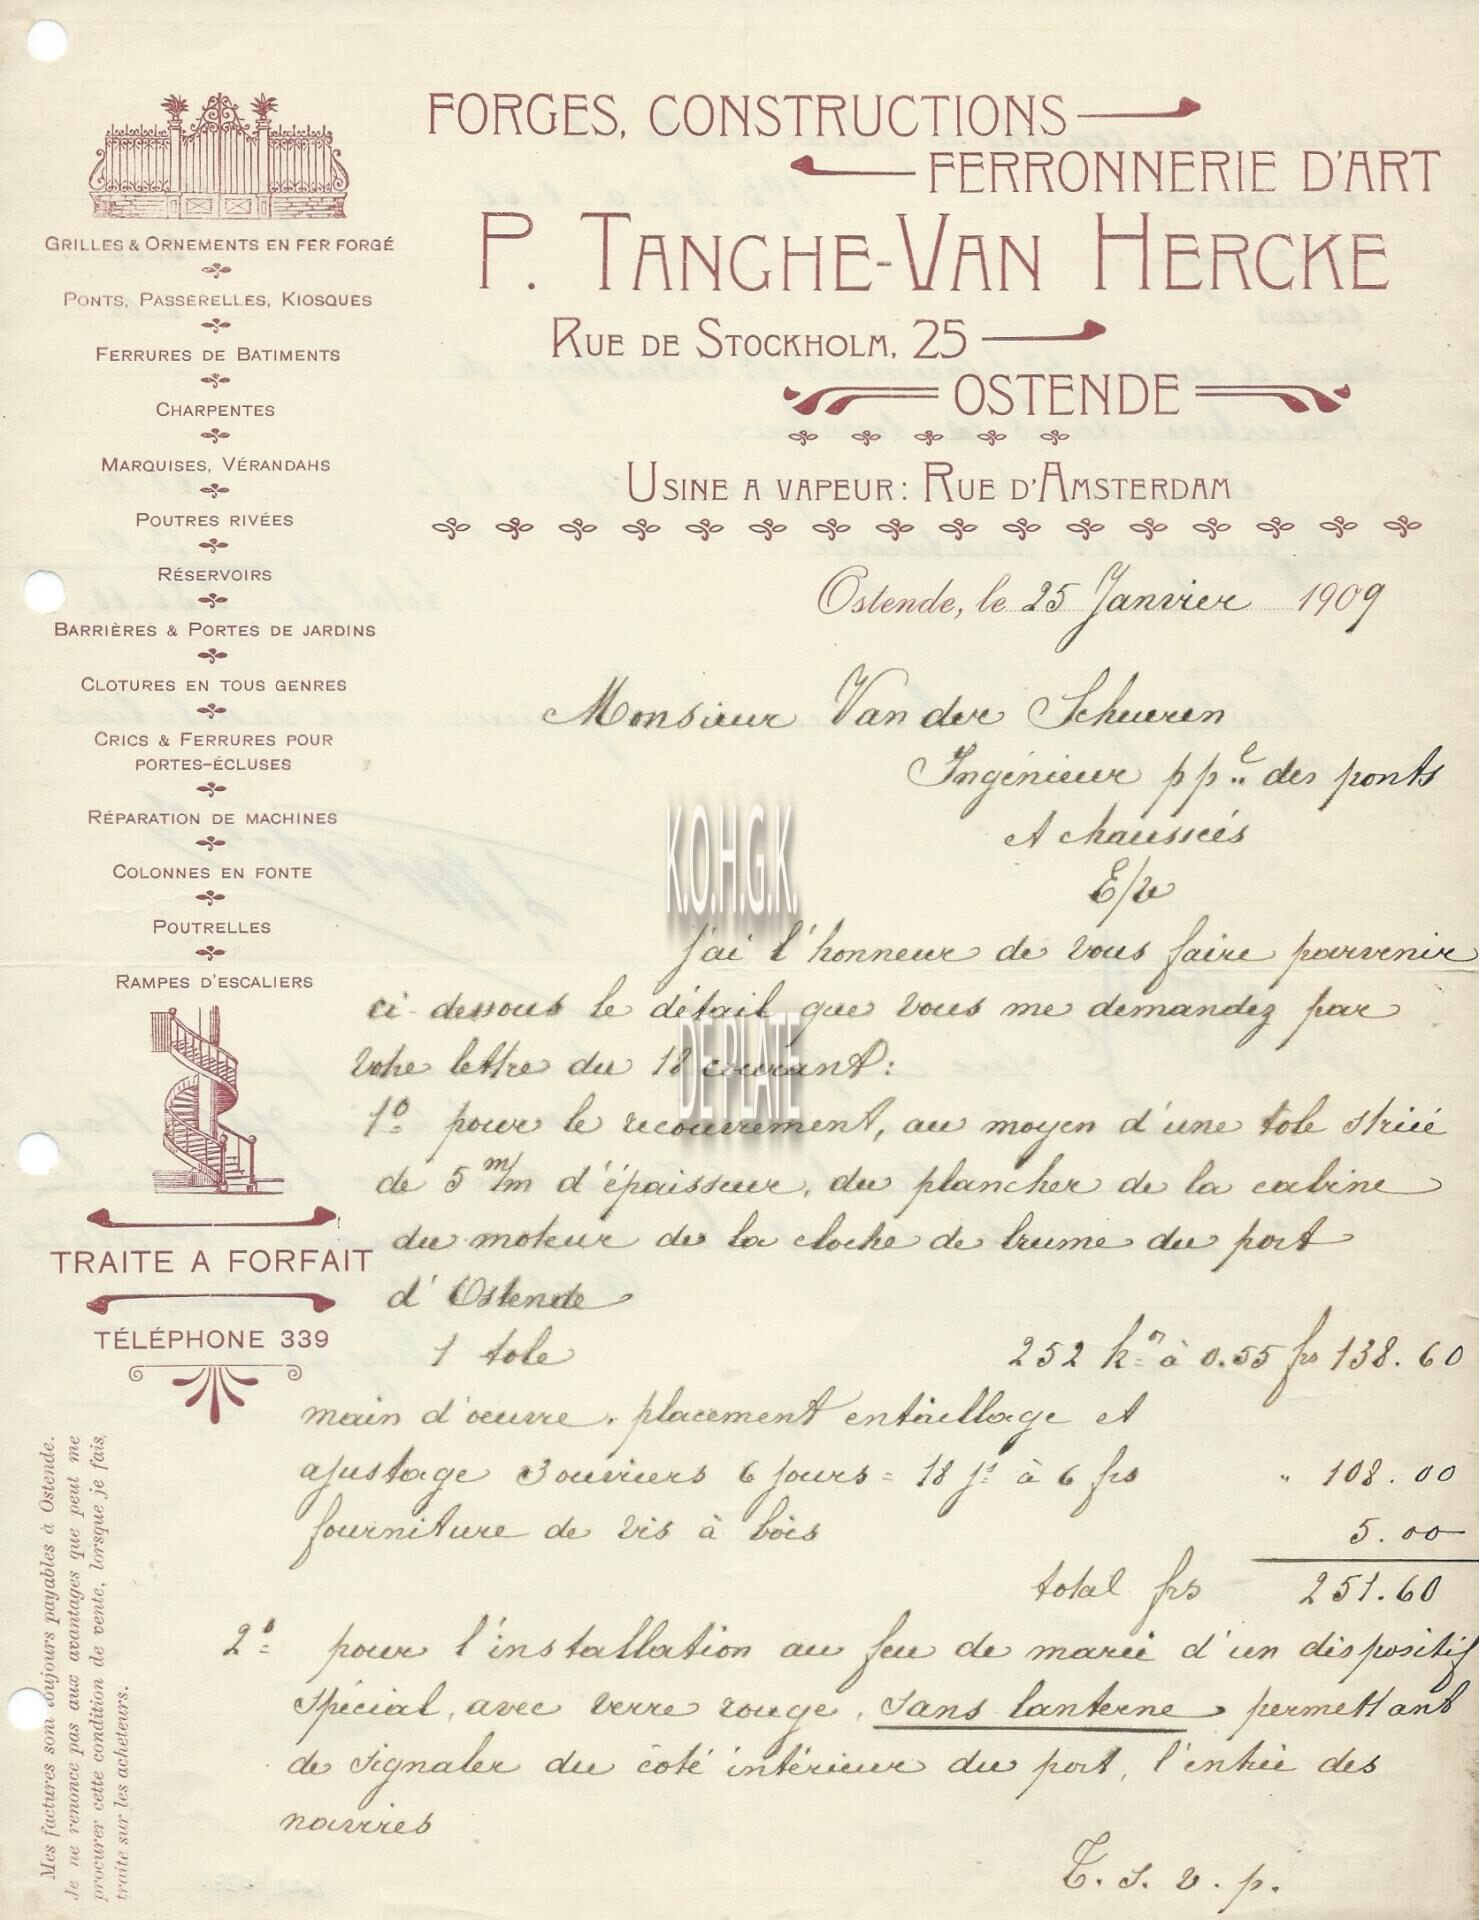 FORGES, CONSTRUCTIONS
FERRONNERIE D'ART
P. TANGHE-VAN HERCKE
RUE DE STOCKHOLM, 25
OSTENDE
USINE A VAPEUR: RUE D'AMSTERDAM
GRILLES & ORNEMENTS EN FER FORGÉ
PONTS, PASSERELLES, KIOSQUES
FERRURES DE BATIMENTS
CHARPENTES
MARQUISES, VÉRANDAHS
POUTRES RIVÉES
RÉSERVOIRS
BARRIÈRES & PORTES DE JARDINS
CLOTURES EN TOUS GENRES
CRICS & FERRURES POUR
PORTES-ÉCLUSES
RÉPARATION DE MACHINES
COLONNES EN FONTE
POUTRELLES
RAMPES D'ESCALIERS
TRAITE A FORFAIT
TÉLÉPHONE 339
Mes factures sont toujours payables à Ostende.
Je ne renonce pas aux avantages que peut me
procurer cette condition de vente, lorsque je fais
traite sur les acheteurs.
Ostende, le 25 Janvier 1909
Monsieur Van der Schueren
Ingénieur ppl des ponts
et chaussées
E/v
J'ai l'honneur de vous faire parvenir
ci-dessous le détail que vous me demandez par
votre lettre du 18 courant:
1º pour le recouvrement, au moyen d'une tole striée
de 5 m/m d'épaisseur, du plancher de la cabine
du moteur de la cloche de brume du port
d'Ostende
1 tole 252 kos à 0.55 frs 138.60
main d'oeuvre, placement entaillage et
ajustage 3 ouvriers 6 jours = 18 jrs à 6 frs " 108.00
fourniture de vis à bois 5.00
total frs 251.60
2º pour l'installation au feu de marée d'un dispositif
spécial, avec verre rouge, sans lanterne permettant
de signaler du coté intérieur du port, l'entrée des
navires
T. S. v. p.
K.O.H.G.K.
DE PLATE